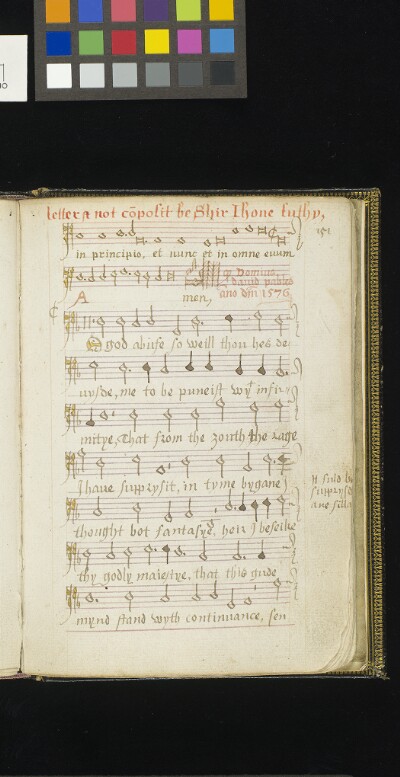 letter & not cōposit be Shir Ihone futhy,
151
in principio, et nunc et in omne euum
A men, q. Dominus
david
ano dm 1576
O god abufe so weill thou hes de
uysde, me to be puneist wyt infir
mitye, That from the zouth the rage
I haue supprysit, in tyme bygane
thought bot fantasye, hou I beseike
thy godly maiestye, that this gude
mynd stand wyth continuance, sen
It suld be
supprysd
ane sillab